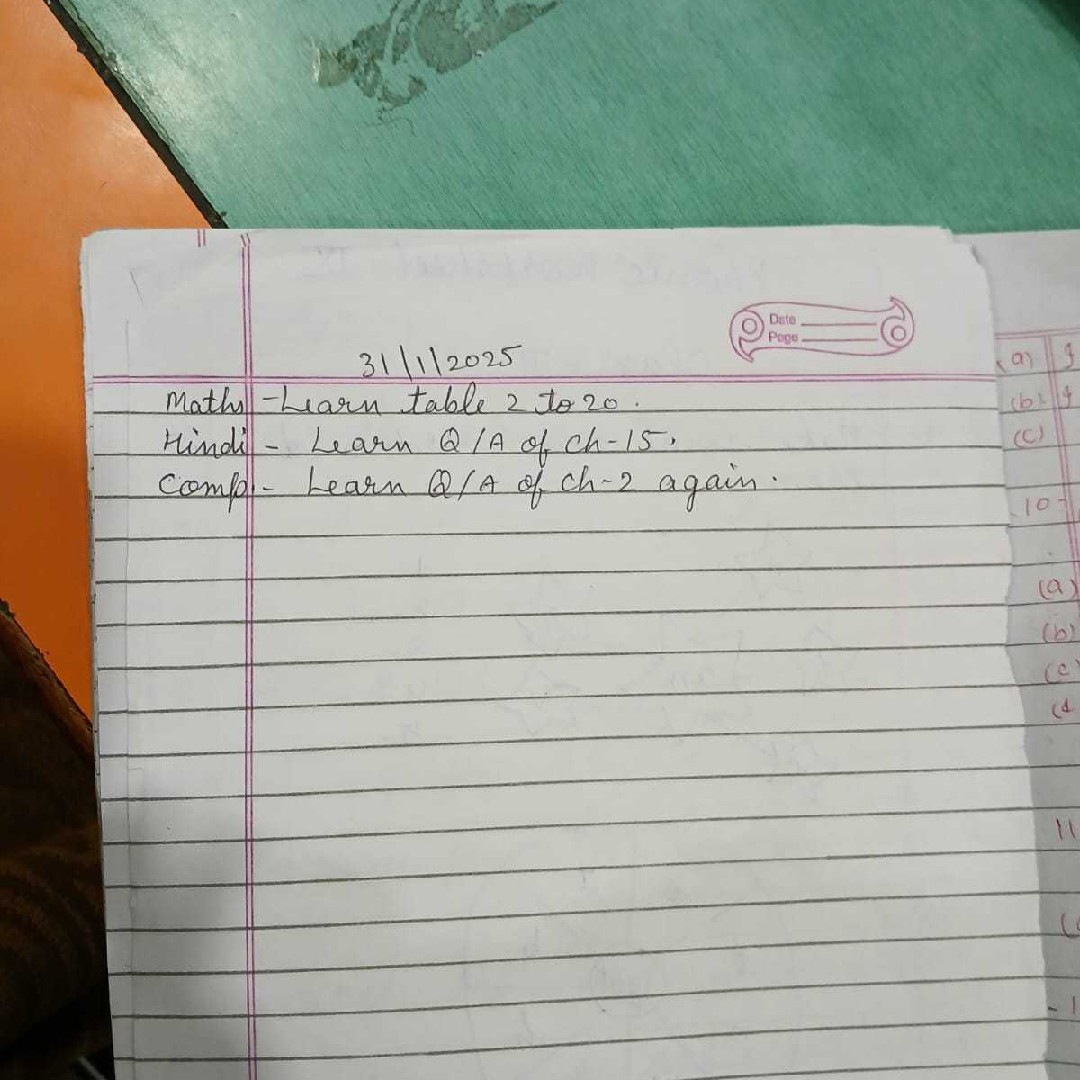 Date
Page
31/1/2025
Maths - Learn table 2 to 20.
Hindi - Learn Q/A of ch-15.
Comp - Learn Q/A of ch-2 again.
(a)
(b)
(c)
10-
(a)
(b)
(c)
(d
11